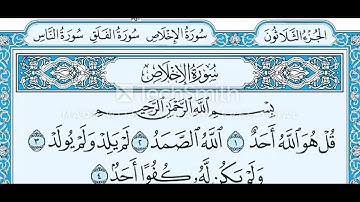 الجزء الثلاثون سورة الإخلاص سورة الفلق سورة الناس
سورة الإخلاص
TechSmith
بِسْمِ اللَّهِ الرَّحْمَنِ الرَّحِيمِ
قُلْ هُوَ اللَّهُ أَحَدٌ ١ اللَّهُ الصَّمَدُ ٢ لَمْ يَلِدْ وَلَمْ يُولَدْ ٣
وَلَمْ يَكُن لَّهُ كُفُوًا أَحَدٌ ٤